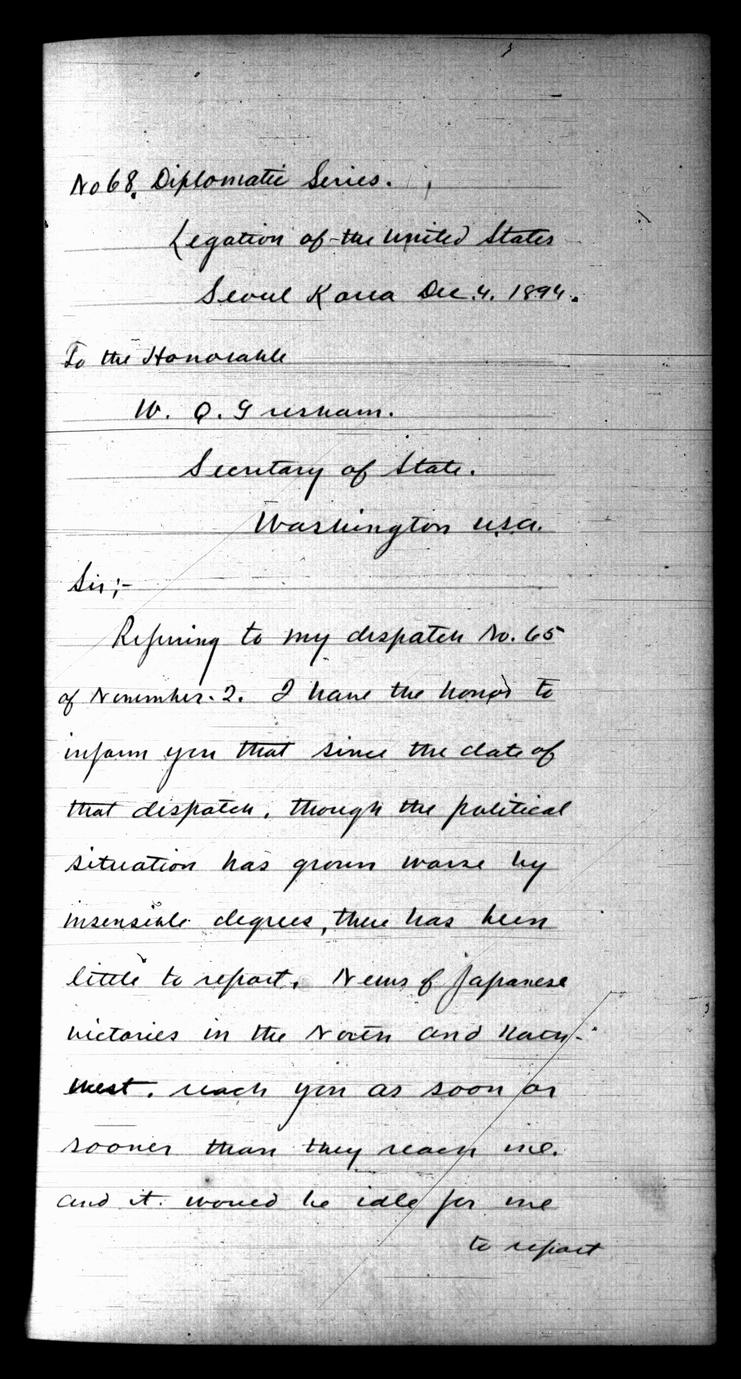 No 68. Diplomatic Series.
Legation of the United States
Seoul Korea Dec. 4. 1894.
To the Honorable
W. Q. Gresham.
Secretary of State.
Washington U.S.A.
Sir;-
Referring to my dispatch No. 65
of November. 2. I have the honor to
inform you that since the date of
that dispatch, though the political
situation has grown worse by
insensible degrees, there has been
little to report. News of Japanese
victories in the North and North-
west. reach you as soon or
sooner than they reach me.
and it would be idle for me
to report